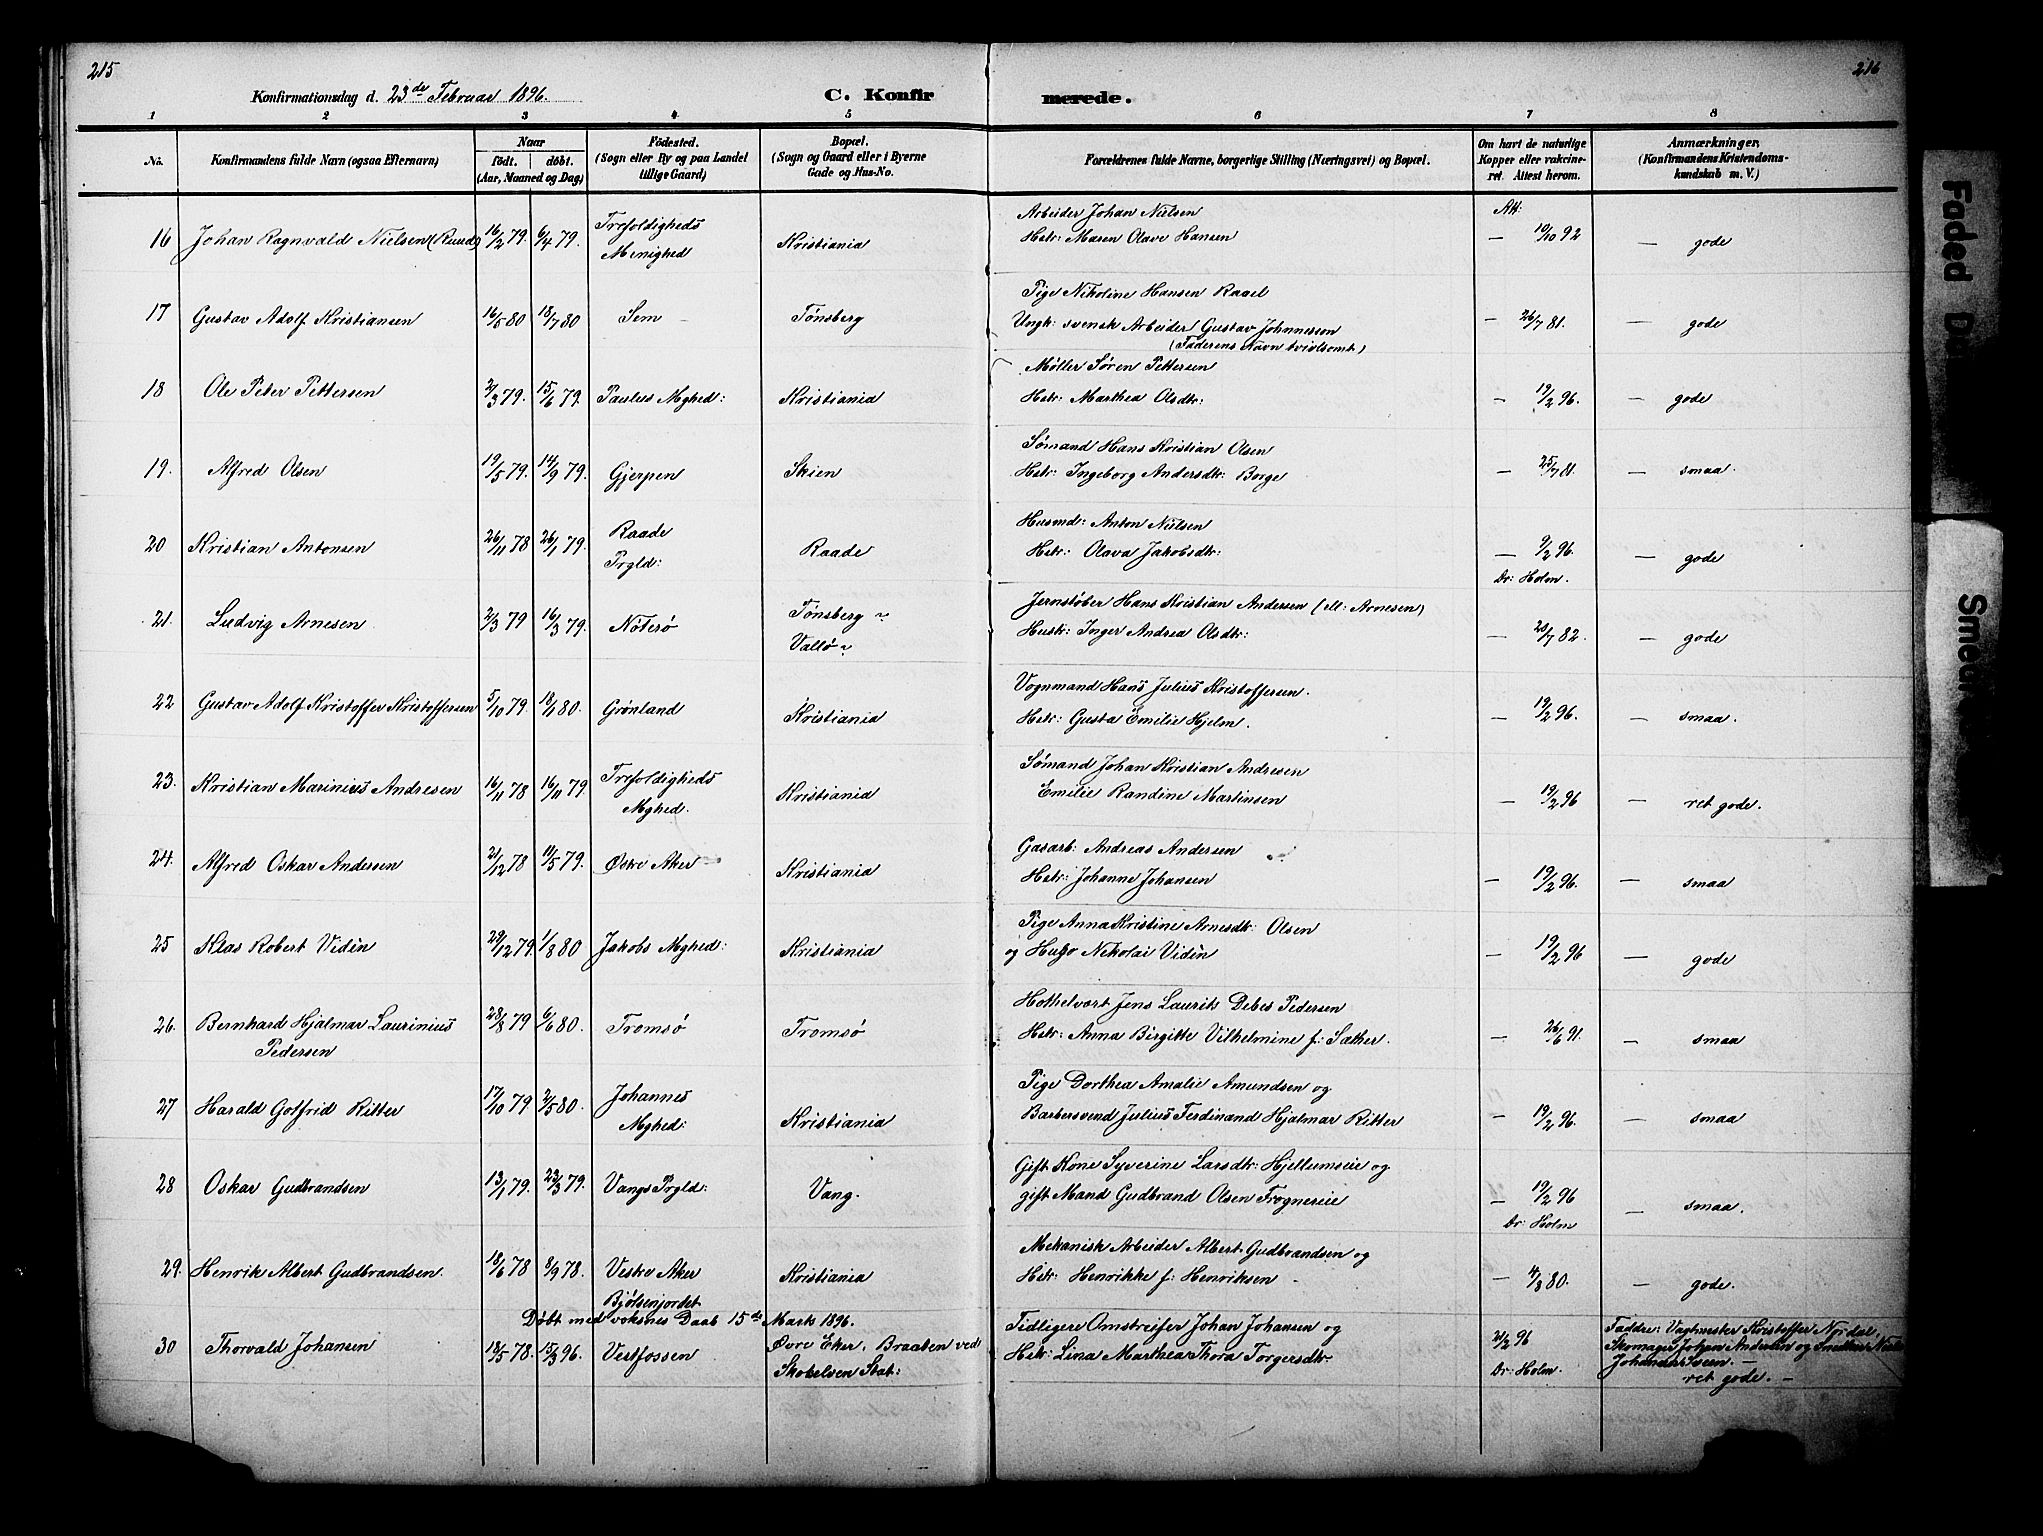 215
216
Konfirmationsdag d. 23de Februar 1896.
C. Konfir merede.
1 2 3 4 5 6 7 8
No.
Konfirmandens fulde Navn (ogsaa Efternavn)
Naar
født. døbt.
(Aar, Maaned og Dag)
Fødested.
(Sogn eller By og paa Landet
tillige Gaard)
Bopæl.
(Sogn og Gaard eller i Byerne
Gade og Hus-No.
Forældrenes fulde Navne, borgerlige Stilling (Næringsvei) og Bopæl.
Om havt de naturlige
Kopper eller vakcine-
ret. Attest herom.
Anmærkninger,
(Konfirmandens Kristendoms-
kundskab m. V.)
16 Johan Ragnvald Nielsen (Ruud) 16/2 79. 6/4 79. Trefoldigheds Menighed Kristiania
Arbeider Johan Nielsen
Hstr: Maren Olave Hansen
Att: — 19/10 92 — gode
17 Gustav Adolf Kristiansen 16/5 80 18/7 80 Sem — Tønsberg
Pige Nikoline Hansen Raael
Ungk: svensk Arbeider Gustav Johannesen
(Faderens Navn tvivlsomt)
— 26/7 81. — gode
18 Ole Peter Pettersen 2/3 79. 15/6 79. Paulus Mghed: Kristiania
Møller Søren Pettersen
Hstr: Marthea Olsdtr:
— 19/2 96. — gode
19. Alfred Olsen 19/5 79. 14/9 79. Gjerpen Skien
Sømand Hans Kristian Olsen
Hstr: Ingeborg Andersdtr: Borge
— 25/7 81. — smaa.
20 Kristian Antonsen 26/11 78 26/1 79. Raade Prgld: Raade
Husmd: Anton Nielsen
Hstr: Olava Jakobsdtr:
— 9/2 96. — gode
Dr: Holm.
21. Ludvig Arnesen 2/3 79 16/3 79. Nøterø Tønsberg Vallø
Jernstøber Hans Kristian Andersen (ell: Arnesen)
Hustr: Inger Andrea Olsdtr:
— 20/7 82. — gode
22 Gustav Adolf Kristoffer Kristoffersen 5/10 79. 18/1 80. Grønland Kristiania
Vognmand Hans Julius Kristoffersen.
Hstr: Gusta Emilie Hjelm.
— 19/2 96. — smaa.
23. Kristian Marinius Andresen 16/11 78 16/11 79. Trefoldigheds Mghed. Kristiania
Sømand Johan Kristian Andresen
Emilie Randine Martinsen
— 19/2 96 — ret gode.
24. Alfred Oskar Andersen 21/12 78 11/5 79. Østre Aker Kristiania
Gasarb: Andreas Andersen
Hstr: Johanne Johansen
— 19/2 96. — smaa
25 Klas Robert Vidin 29/12 79. 1/8 80 Jakobs Mghed: Kristiania
Pige Anna Kristine Arnesdtr: Olsen
og Hugo Nikolai Vidin
— 19/2 96 — gode
26. Bernhard Hjalmar Laurinius
Pedersen 28/8 79 6/6 80. Tromsø Tromsø
Hothelvært Jens Laurits Debes Pedersen
Hstr: Anna Birgitte Vilhelmine f: Sæther.
— 26/6 91. — smaa
27 Harald Gotfrid Ritter 17/10 79 2/5 80. Johannes Mghed: Kristiania
Pige Dorthea Amalie Amundsen og
Barbersvend Julius Ferdinand Hjalmar Ritter
— 19/2 96. — smaa
28 Oskar Gudbrandsen 13/1 79. 23/3 79. Vangs Prgld: Vang.
Gift Kone Syverine Larsdtr: Hjellumseie og
gift Mand Gudbrand Olsen Frognereie
— 19/2 96 — smaa.
Dr: Holm
29. Henrik Albert Gudbrandsen. 18/6 78 8/9 78. Vestre Aker Bjølsenjordet Kristiania
Mekanisk Arbeider Albert Gudbrandsen og
Hstr: Henrikke f: Henriksen
— 4/8 80. — gode.
Døbt med voksnes Daab 15de Marts 1896.
30 Thorvald Johansen 18/5 78. 15/3 96. Vestfossen Øvre Eker. Braaten ved Skotselven Stat:
Tidligere Omstreifer Johan Johansen og
Hstr: Lina Marthea Thora Torgersdtr.
21/2 96
Dr: Holm.
Faddre: Vagtmester Kristoffer Nordal,
Skomager Johan Andersen og Snedker
Johannes Sveen. —
ret gode. —
Faded
Sm